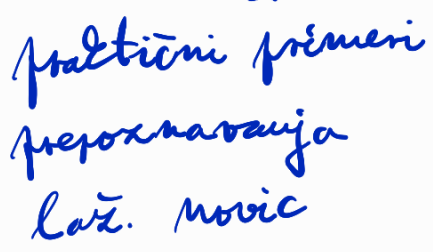 praktični primeri
prepoznavanja
laž. novic